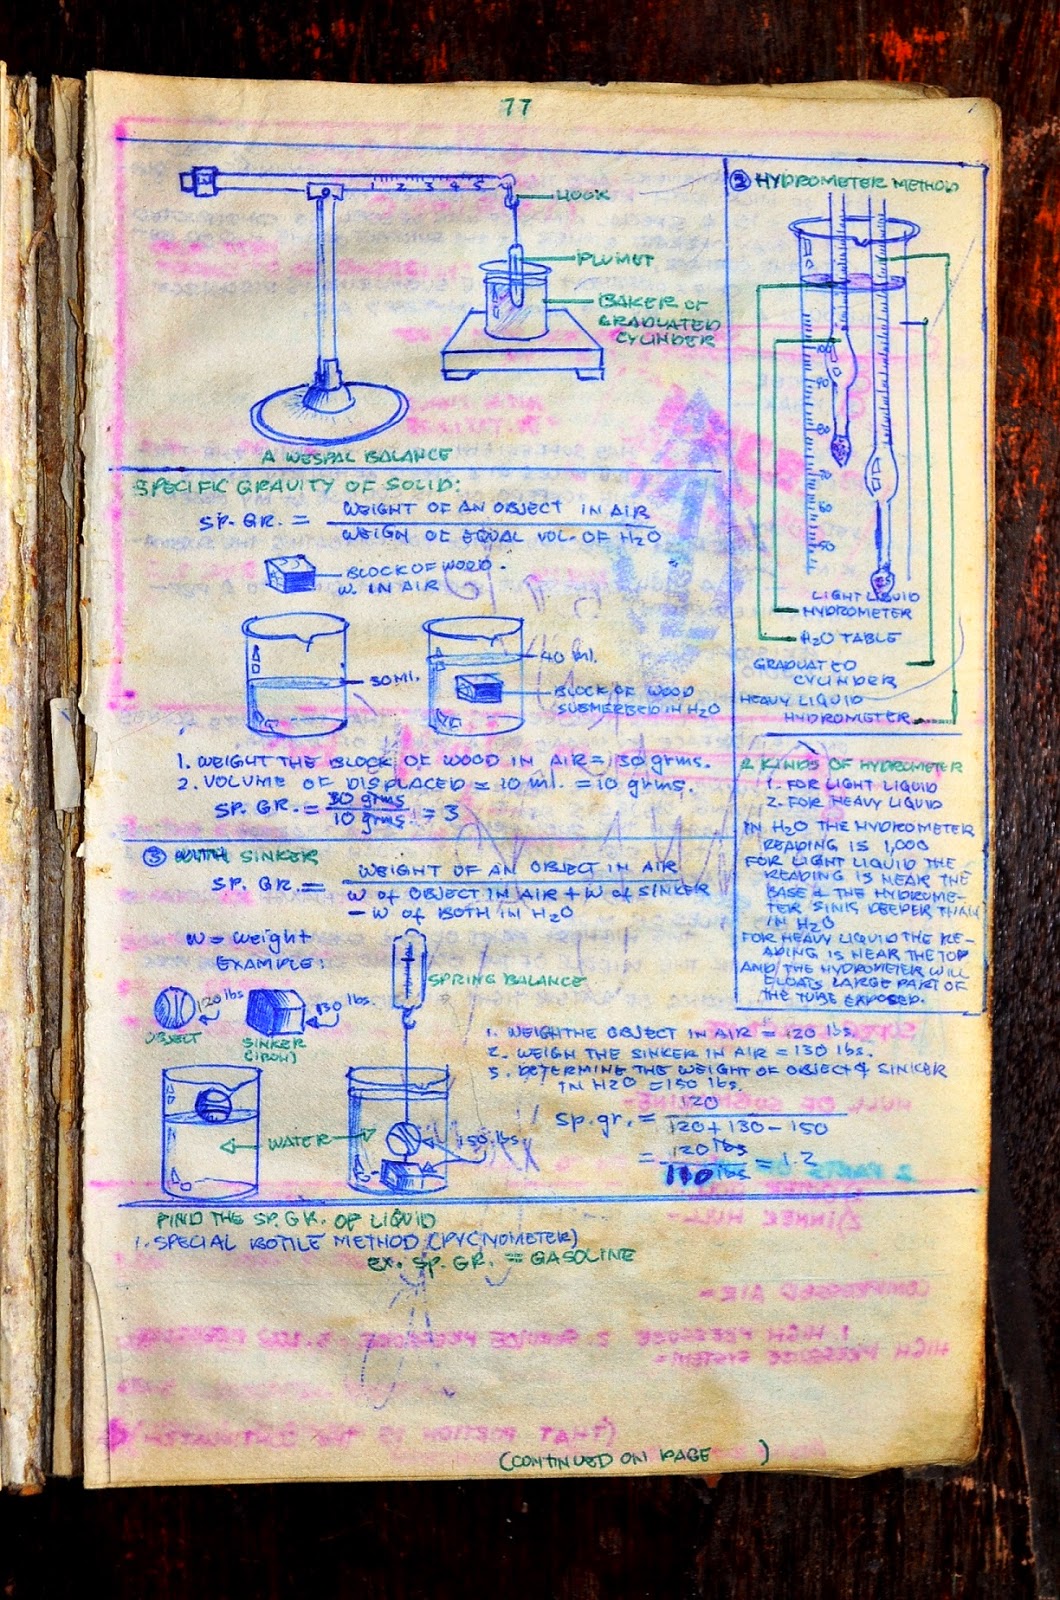 77
1 2 3 4 5
HOOK
PLUMET
BAKER OF
GRADUATED
CYLINDER
A WESPAL BALANCE
SPECIFIC GRAVITY OF SOLID:
SP. GR. = WEIGHT OF AN OBJECT IN AIR
WEIGH OF EQUAL VOL. OF H2O
BLOCK OF WOOD.
W. IN AIR
30 ml.
40 ml.
BLOCK OF WOOD
SUBMERBED IN H2O
1. WEIGHT THE BLOCK OF WOOD IN AIR = 30 grms.
2. VOLUME OF DISPLACED = 10 ml. = 10 grms.
SP. GR. = 30 grms
10 grms. = 3
③ WITH SINKER
SP. GR. = WEIGHT OF AN OBJECT IN AIR
W of OBJECT IN AIR + W of SINKER
- W of BOTH IN H2O
w = weight
EXAMPLE:
SPRING BALANCE
120 lbs
OBJECT
130 lbs.
SINKER
(IRON)
WATER
150 lbs
1. WEIGHTHE OBJECT IN AIR = 120 lbs.
2. WEIGH THE SINKER IN AIR = 130 lbs.
3. DETERMINE THE WEIGHT OF OBJECT & SINKER
IN H2O = 150 lbs.
sp.gr. = 120
120 + 130 - 150
= 120 lbs = 1.2
lbs
FIND THE SP. GR. OF LIQUID
1. SPECIAL BOTLE METHOD (PYCNOMETER)
EX. SP. GR. = GASOLINE
(CONTINUED ON PAGE )
② HYDROMETER METHOD
100
90
80
70
60
50
LIGHT LIQUID
HYDROMETER
H2O TABLE
GRADUATED
CYLINDER
HEAVY LIQUID
HYDROMETER
2 KINDS OF HYDROMETER
1. FOR LIGHT LIQUID
2. FOR HEAVY LIQUID
IN H2O THE HYDROMETER
READING IS 1,000
FOR LIGHT LIQUID THE
READING IS NEAR THE
BASE & THE HYDROME-
TER SINKS DEEPER THAN
IN H2O
FOR HEAVY LIQUID THE RE-
ADING IS NEAR THE TOP
AND THE HYDROMETER WILL
FLOATS LARGE PART OF
THE TUBE EXPOSED.